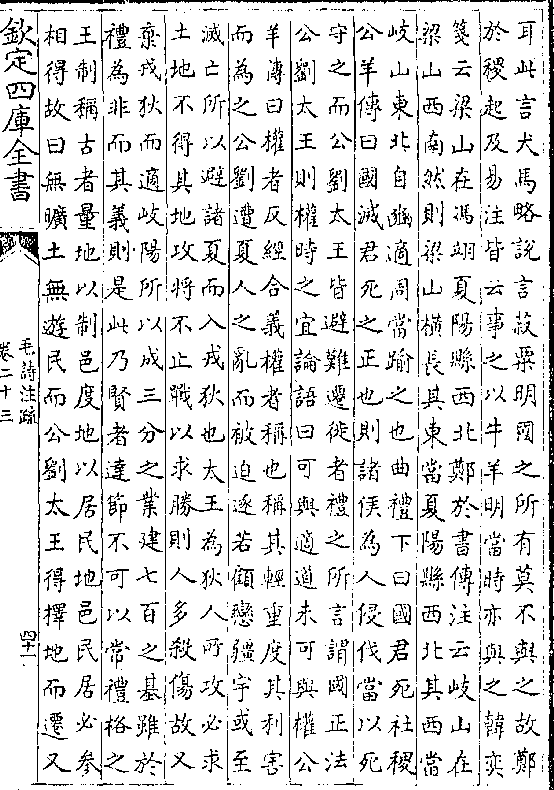 耳此言犬馬略說言菽粟明國之所有莫不與之故鄭
於稷起及易注皆云事之以牛羊明當時亦與之韓奕
箋云梁山在馮翊夏陽縣西北鄭於書傳注云岐山在
梁山西南然則梁山橫長其東當夏陽縣西北其西當
岐山東北自豳適周當踰之也曲禮下曰國君死社稷
公羊傳曰國滅君死之正也則諸侯為人侵伐當以死
守之而公劉太王皆避難遷徙者禮之所言謂國正法
公劉太王則權時之宜論語曰可與適道未可與權公
羊傳曰權者反經合義權者稱也稱其輕重度其利害
而為之公劉遭夏人之亂而被迫逐若顧戀疆宇或至
滅亡所以避諸夏而入戎狄也太王為狄人所攻必求
土地不得其地攻將不止戰以求勝則人多殺傷故又
棄戎狄而適岐陽所以成三分之業建七百之基雖於
禮為非而其義則是此乃賢者達節不可以常禮格之
王制稱古者量地以制邑度地以居民地邑民居必參
相得故曰無曠土無遊民而公劉太王得擇地而遷又
欽定四庫全書
毛詩注疏
卷二十三
四十一